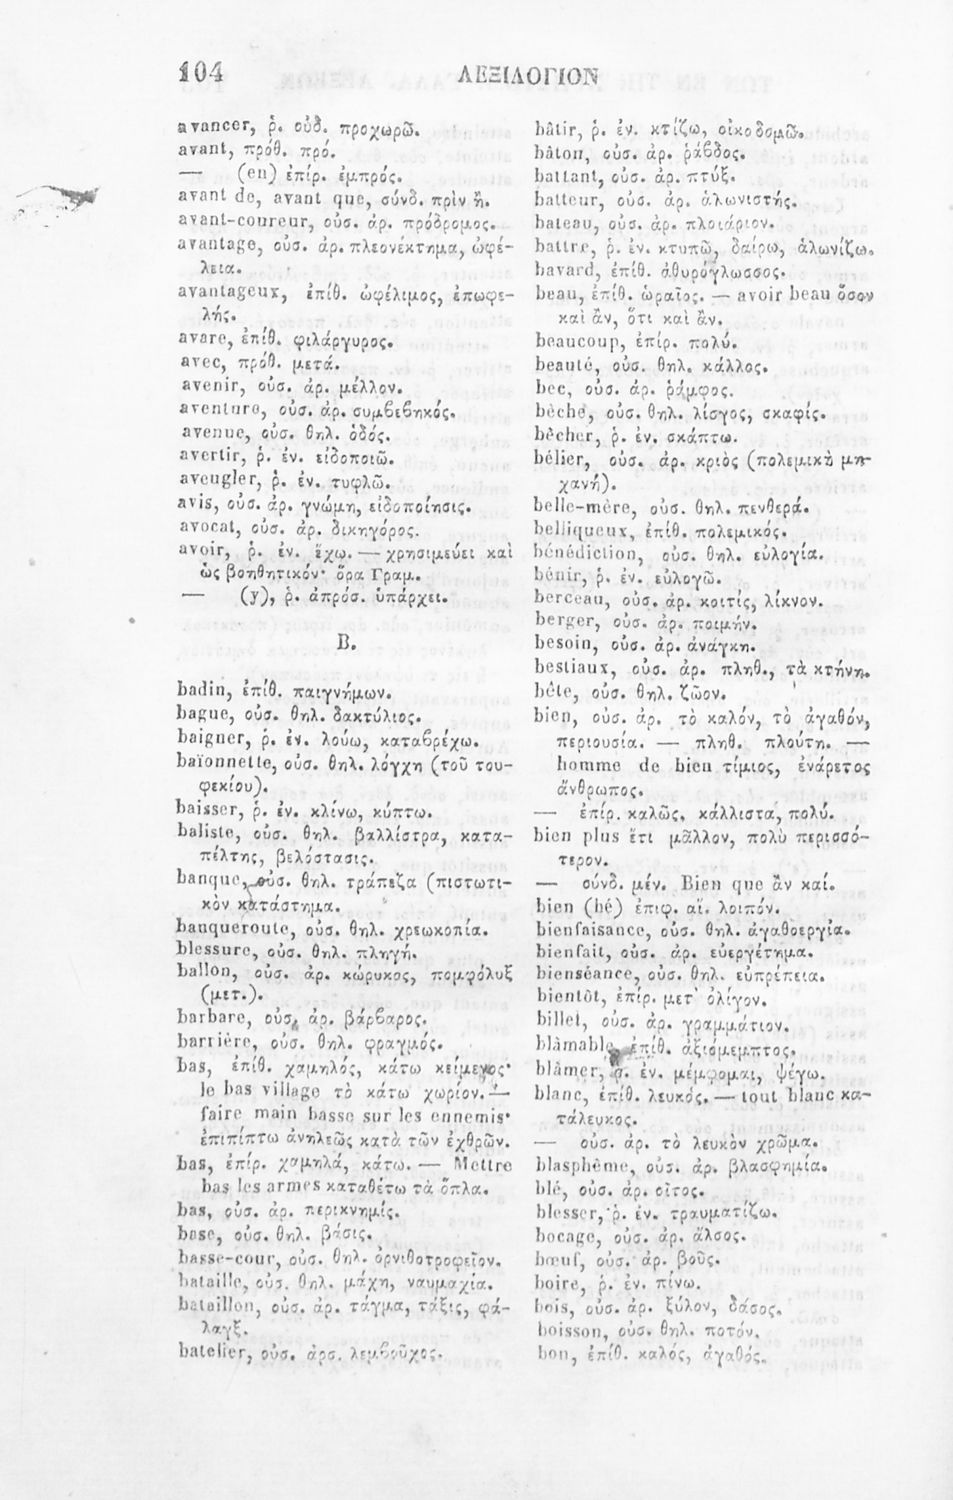 104
ΛΕΞΙΛΟΓΙΟΝ
avancer, ῥ. οὐδ. προχωρῶ.
avant, πρόθ. πρό.
— (en) ἐπίρ. ἐμπρός.
avant de, avant que, σύνδ. πρὶν ἢ.
avant-coureur, οὐσ. ἀρ. πρόδρομος.
avantage, οὐσ. ἀρ. πλεονέκτημα, ὠφέ-
λεια.
avantageux, ἐπίθ. ὠφέλιμος, ἐπωφε-
λής.
avare, ἐπίθ. φιλάργυρος.
avec, πρόθ. μετά.
avenir, οὐσ. ἀρ. μέλλον.
aventure, οὐσ. ἀρ. συμβεβηκός.
avenue, οὐσ. θηλ. ὁδός.
avertir, ῥ. ἐν. εἰδοποιῶ.
aveugler, ῥ. ἐν. τυφλῶ.
avis, οὐσ. ἀρ. γνώμη, εἰδοποίησις.
avocat, οὐσ. ἀρ. δικηγόρος.
avoir, ῥ. ἐν. ἔχω. — χρησιμεύει καὶ
ὡς βοηθητικόν· ὅρα Γραμ.
— (y), ῥ. ἀπρόσ. ὑπάρχει.
B.
badin, ἐπίθ. παιγνήμων.
bague, οὐσ. θηλ. δακτύλιος.
baigner, ῥ. ἐν. λούω, καταβρέχω.
baïonnette, οὐσ. θηλ. λόγχη (τοῦ του-
φεκίου).
baisser, ῥ. ἐν. κλίνω, κύπτω.
baliste, οὐσ. θηλ. βαλλίστρα, κατα-
πέλτης, βελόστασις.
banque, οὐσ. θηλ. τράπεζα (πιστωτι-
κὸν κατάστημα.
banqueroute, οὐσ. θηλ. χρεωκοπία.
blessure, οὐσ. θηλ. πληγή.
ballon, οὐσ. ἀρ. κώρυκος, πομφόλυξ
(μετ.).
barbare, οὐσ. ἀρ. βάρβαρος.
barrière, οὐσ. θηλ. φραγμός.
bas, ἐπίθ. χαμηλός, κάτω κείμενος·
le bas village τὸ κάτω χωρίον. —
faire main basse sur les ennemis·
ἐπιπίπτω ἀνηλεῶς κατὰ τῶν ἐχθρῶν.
bas, ἐπίρ. χαμηλά, κάτω. — Mettre
bas les armes καταθέτω τὰ ὅπλα.
bas, οὐσ. ἀρ. περικνημίς.
base, οὐσ. θηλ. βάσις.
basse-cour, οὐσ. θηλ. ὀρνιθοτροφεῖον.
bataille, οὐσ. θηλ. μάχη, ναυμαχία.
bataillon, οὐσ. ἀρ. τάγμα, τάξις, φά-
λαγξ.
batelier, οὐσ. ἀρσ. λεμβοῦχος.
bâtir, ῥ. ἐν. κτίζω, οἰκοδομῶ.
bâton, οὐσ. ἀρ. ῥάβδος.
battant, οὐσ. ἀρ. πτύξ.
batteur, οὐσ. ἀρ. ἁλωνιστής.
bateau, οὐσ. ἀρ. πλοιάριον.
battre, ῥ. ἐν. κτυπῶ, δαίρω, ἁλωνίζω.
bavard, ἐπίθ. ἀθυρόγλωσσος.
beau, ἐπίθ. ὡραῖος. — avoir beau ὅσον
καὶ ἄν, ὅτι καὶ ἄν.
beaucoup, ἐπίρ. πολύ.
beauté, οὐσ. θηλ. κάλλος.
bec, οὐσ. ἀρ. ῥάμφος.
bêche, οὐσ. θηλ. λίσγος, σκαφίς.
bêcher, ῥ. ἐν. σκάπτω.
bélier, οὐσ. ἀρ. κριὸς (πολεμικὴ μη-
χανή).
belle-mère, οὐσ. θηλ. πενθερά.
belliqueux, ἐπίθ. πολεμικός.
bénédiction, οὐσ. θηλ. εὐλογία.
bénir, ῥ. ἐν. εὐλογῶ.
berceau, οὐσ. ἀρ. κοιτίς, λίκνον.
berger, οὐσ. ἀρ. ποιμήν.
besoin, οὐσ. ἀρ. ἀνάγκη.
bestiaux, οὐσ. ἀρ. πληθ., τὰ κτήνη.
bête, οὐσ. θηλ. ζῶον.
bien, οὐσ. ἀρ. τὸ καλόν, τὸ ἀγαθόν,
περιουσία. — πληθ. πλούτη. —
homme de bien τίμιος, ἐνάρετος
ἄνθρωπος.
— ἐπίρ. καλῶς, κάλλιστα, πολύ.
bien plus ἔτι μᾶλλον, πολὺ περισσό-
τερον.
— σύνδ. μέν. Bien que ἂν καί.
bien (hé) ἐπιφ. αἴ. λοιπόν.
bienfaisance, οὐσ. θηλ. ἀγαθοεργία.
bienfait, οὐσ. ἀρ. εὐεργέτημα.
bienséance, οὐσ. θηλ. εὐπρέπεια.
bientôt, ἐπίρ. μετ' ὀλίγον.
billet, οὐσ. ἀρ. γραμμάτιον.
blâmable, ἐπίθ. ἀξιόμεμπτος.
blâmer, ῥ. ἐν. μέμφομαι, ψέγω.
blanc, ἐπίθ. λευκός. — tout blanc κα-
τάλευκος.
— οὐσ. ἀρ. τὸ λευκὸν χρῶμα.
blasphème, οὐσ. ἀρ. βλασφημία.
blé, οὐσ. ἀρ. σῖτος.
blesser, ῥ. ἐν. τραυματίζω.
bocage, οὐσ. ἀρ. ἄλσος.
bœuf, οὐσ. ἀρ. βοῦς.
boire, ῥ. ἐν. πίνω.
bois, οὐσ. ἀρ. ξύλον, δάσος.
boisson, οὐσ. θηλ. ποτόν.
bon, ἐπίθ. καλός, ἀγαθός.